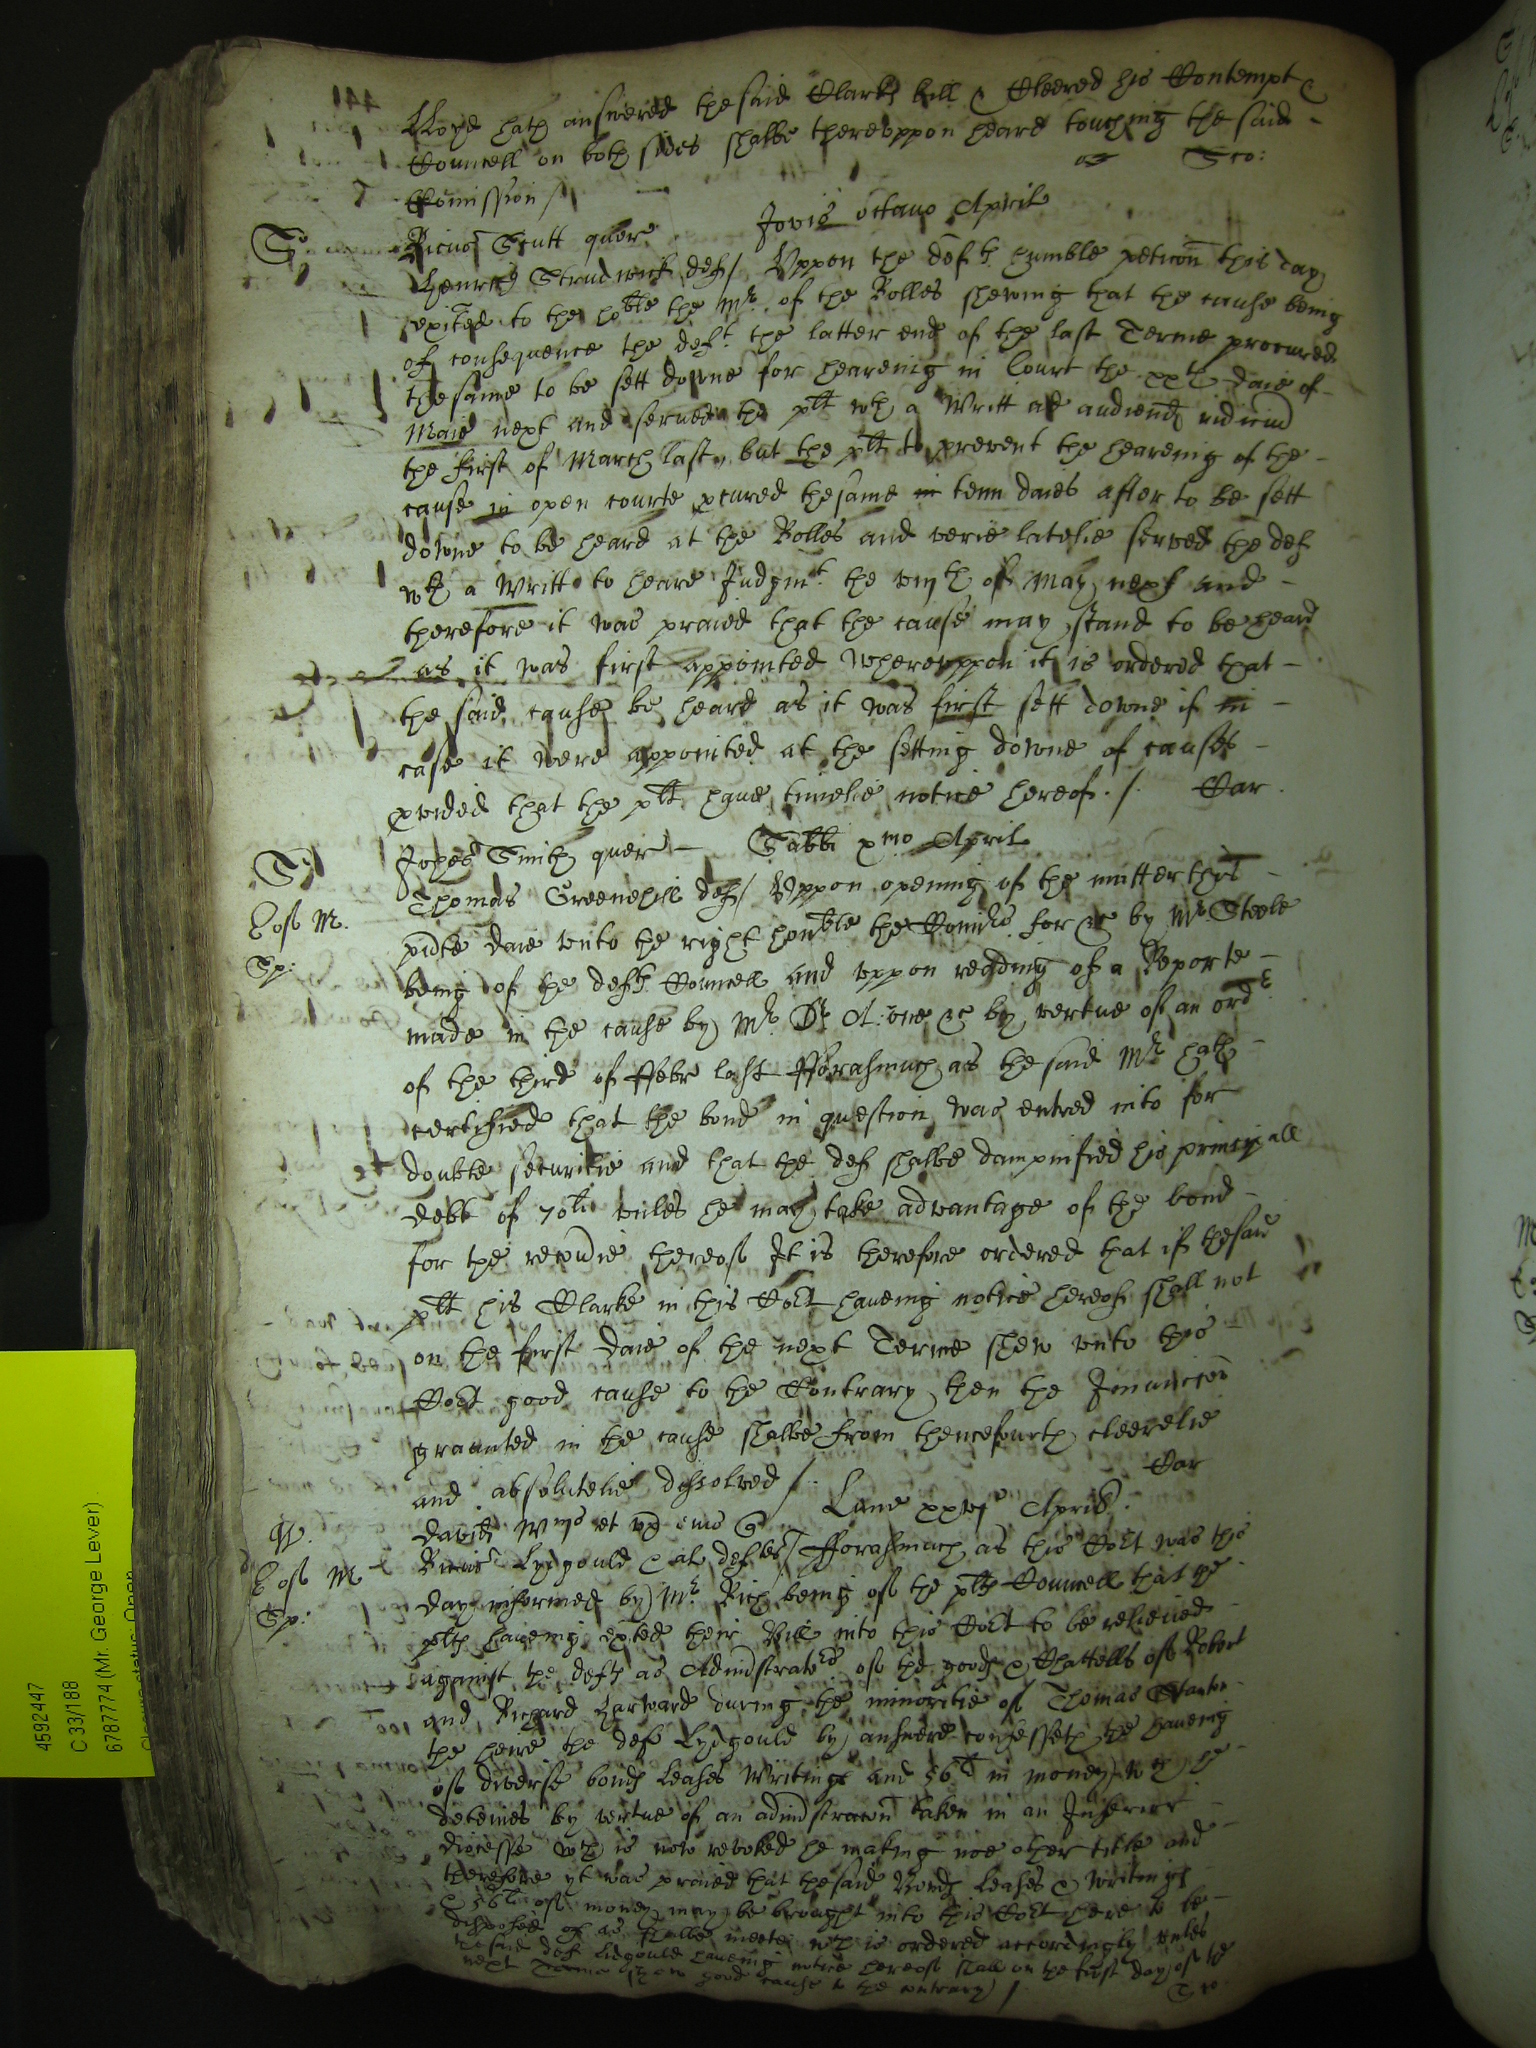 Lloyd hath answered the said Clarks bill & Cleered his Contempt &
Councell on both sides shalbe thereuppon heard touching the said
Comission /
Jovis octavo April
Ricus Scutt quer
Henricus Strudwick def / Uppon the deftes humble peticon this day
exited to the hoble the Mr of the Rolles shewing that the cause being
of consequence the deft the latter end of the last Terme procured
the same to be sett downe for heareing in Court the xxth daie of
Maie next and served the plt wth a Writt ad audiend iudiciu
the first of March last, but the plt to prevent the heareing of the
cause in open courte pcured the same in tenn daies after to be sett
downe to be heard at the Rolles and verie latelie served the def
wth a Writt to heare Judgmt the viijth of May next and
therefore it was praied that the cause may stand to be heard
as it was first appointed Whereuppon it is ordered that
the said cause be heard as it was first sett downe if in
case it were appointed at the setting downe of causes
pvided that the plt have timelie notice hereof. /. Car
Johes Smith quer Sabbi xmo April
Thomas Greenehill def / Uppon opening of the matter this
pnte daie unto the right honble the Comrs for &c by Mr Steele
being of the defts Councell and uppon reading of a Reporte
made in the cause by Mr Dr one &c by vertue of an ordr
of the third of ffebr last fforasmuch as the said Mr hath
certified that the bond in question was entred into for
double securitie and that the def shalbe dampnified his principall
debt of 70li unles he may take advantage of the bond
for the recovie thereof It is therefore ordered that if the said
plt his Clarke in this Cort haveing notice hereof shall not
on the first daie of the next Terme shew unto this
Cort good cause to the Contrary then the Iniunccon
graunted in the cause shalbe from thencefourth cleerelie
and absolutelie dissolved /. Car
David Wms et ux eius q Lune xxvjo April.
Ricus Lydgould & al deftes / fforasmuch as this Cort was this
day informed by Mr Rich being of the plts Councell that the
plts haveing exited their Bill into this Cort to be relieved
against the defts as Administrators of the goods & Chattells of Robert
and Richard Harward during the minoritie of Thomas Stanton
the heire the def Lydgould by answere confesseth the haveing
of diverse bonds leases Writings and 56li in money wch he
deteines by vertue of an administracon taken in an Inferior
diocesse wch is now revoked he making noe other title and
therefore yt was praied that the said Bonds leases & Writings
& 56li of money may be brought into this Cort here to be
disposed of as shalbe meete wch is ordered accordingly unles
the said def Lidgould haveing notice hereof shall on the first day of the
next Terme shew good cause to the contrary /.
4592447
C 33/188
6787774 (Mr. George Lever)
Closure status: Open